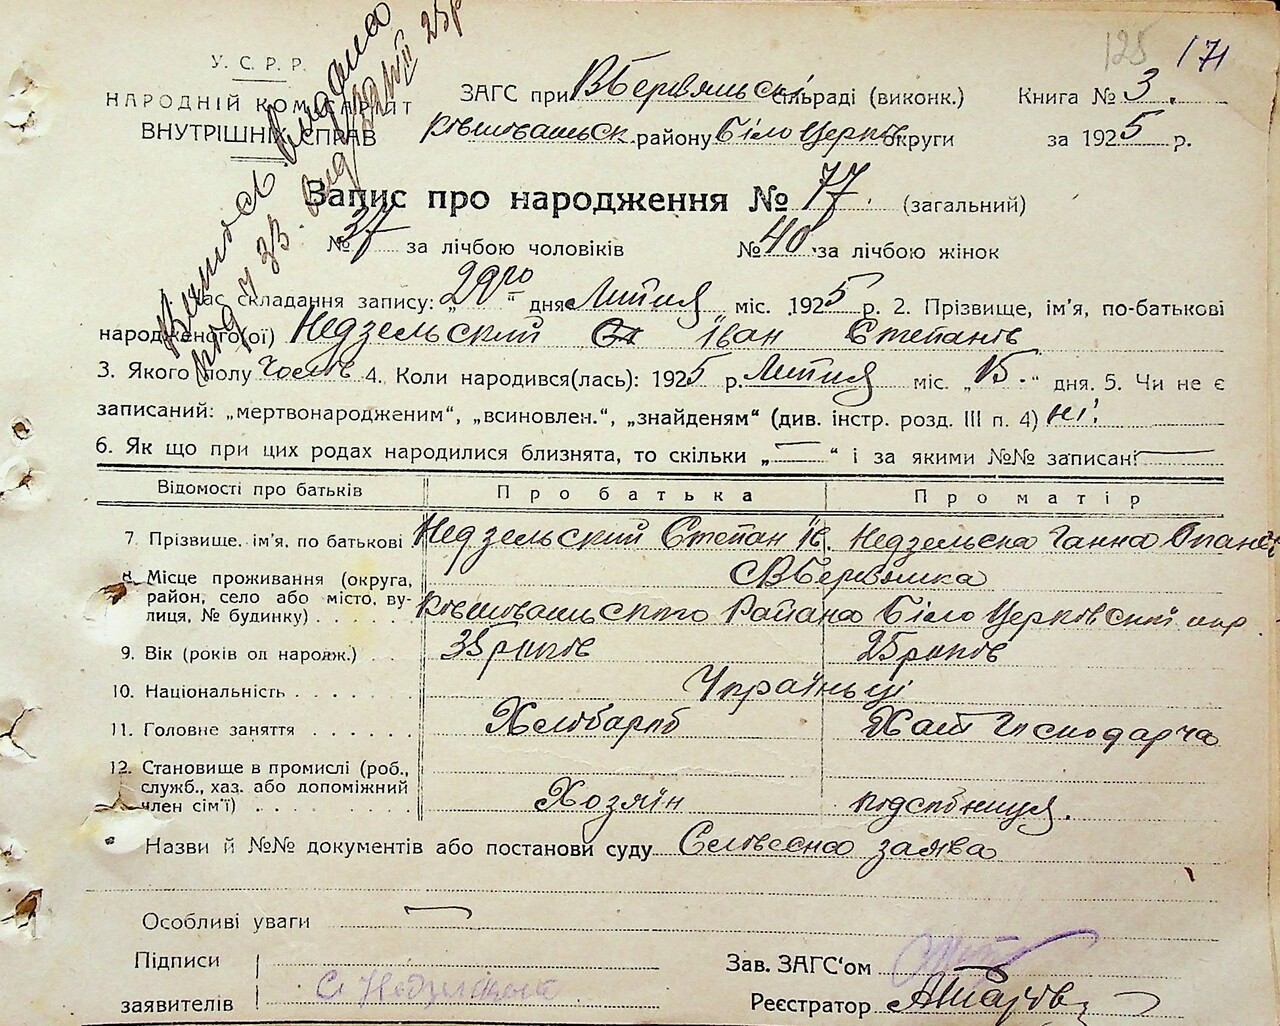 125 171
У. С. Р. Р.
НАРОДНІЙ КОМІСАРІЯТ
ВНУТРІШНІХ СПРАВ
Виписъ видано
ЗАГС при ВБервянські сільраді (виконк.) Книга № 3.
Ківшоватськ. району Біло Церків. округи за 1925 р.
Запис про народження № 77. (загальний)
№ 37 за лічбою чоловіків № 40 за лічбою жінок
час складання запису: „29го“ дня Липня міс. 1925 р. 2. Прізвище, ім'я, по-батькові
народженого(ої) Недзельский Іван Степанів
3. Якого полу Чоловік 4. Коли народився(лась): 1925 р. Липня міс. „15.“ дня. 5. Чи не є
записаний: „мертвонародженим“, „всиновлен.“, „знайденям“ (див. інстр. розд. III п. 4) ні!
6. Як що при цих родах народилися близнята, то скільки „—“ і за якими №№ записані —
Відомості про батьків Про батька Про матір
7. Прізвище, ім'я, по батькові Недзельский Степан Ів. Недзельска Ганна Опанас
8. Місце проживання (округа, ВБервянка
район, село або місто, ву-
лиця, № будинку) . . . . . Ківшоватського Района Біло Церковской окр.
9. Вік (років од народж.) . . 35 років 25 років
10. Національність . . . . . . Україньці
11. Головне заняття . . . . . . Хлібороб Хатт Господарча
12. Становище в промислі (роб.,
служб., хаз. або допоміжний
член сім'ї) . . . . . . . . Хозяїн подсобниця.
Назви й №№ документів або постанови суду Словесна заява
Особливі уваги —
Підписи Зав. ЗАГС'ом
заявителів С Недзельский Реєстратор